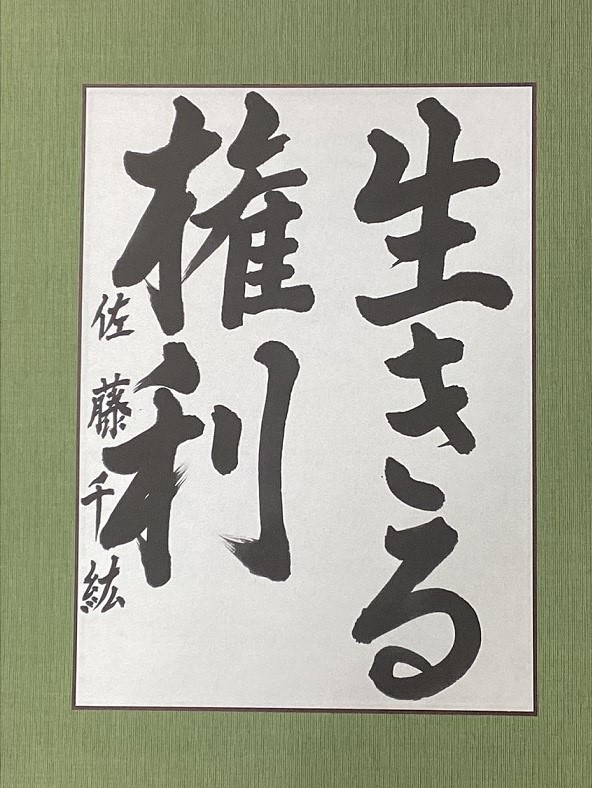 生きる
権利
佐藤千紘